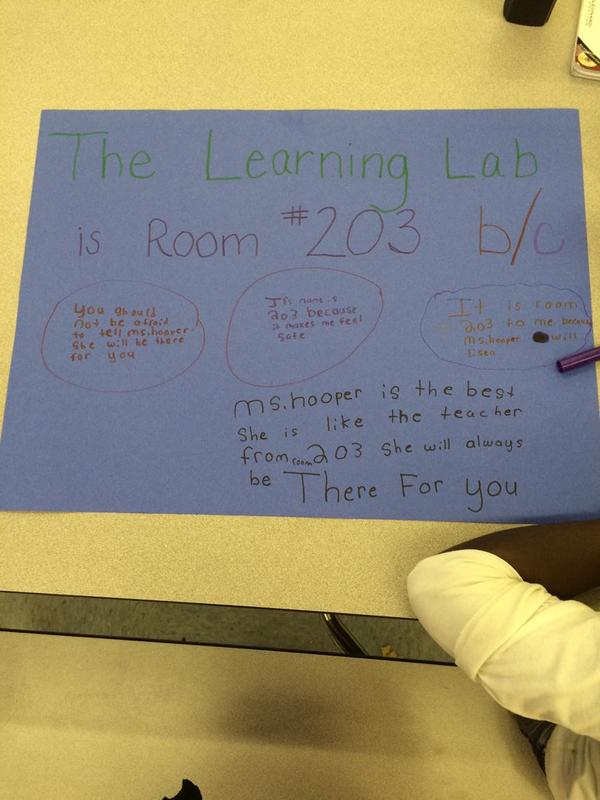 The Learning Lab
is Room #203 b/c
You should
not be afraid
to tell ms.hooper
She will be there
for you
Its name is
203 because
it makes me feel
safe
It is room
203 to me because
ms.hooper will
lisen
ms.hooper is the best
She is like the teacher
from room 203 She will always
be There For you